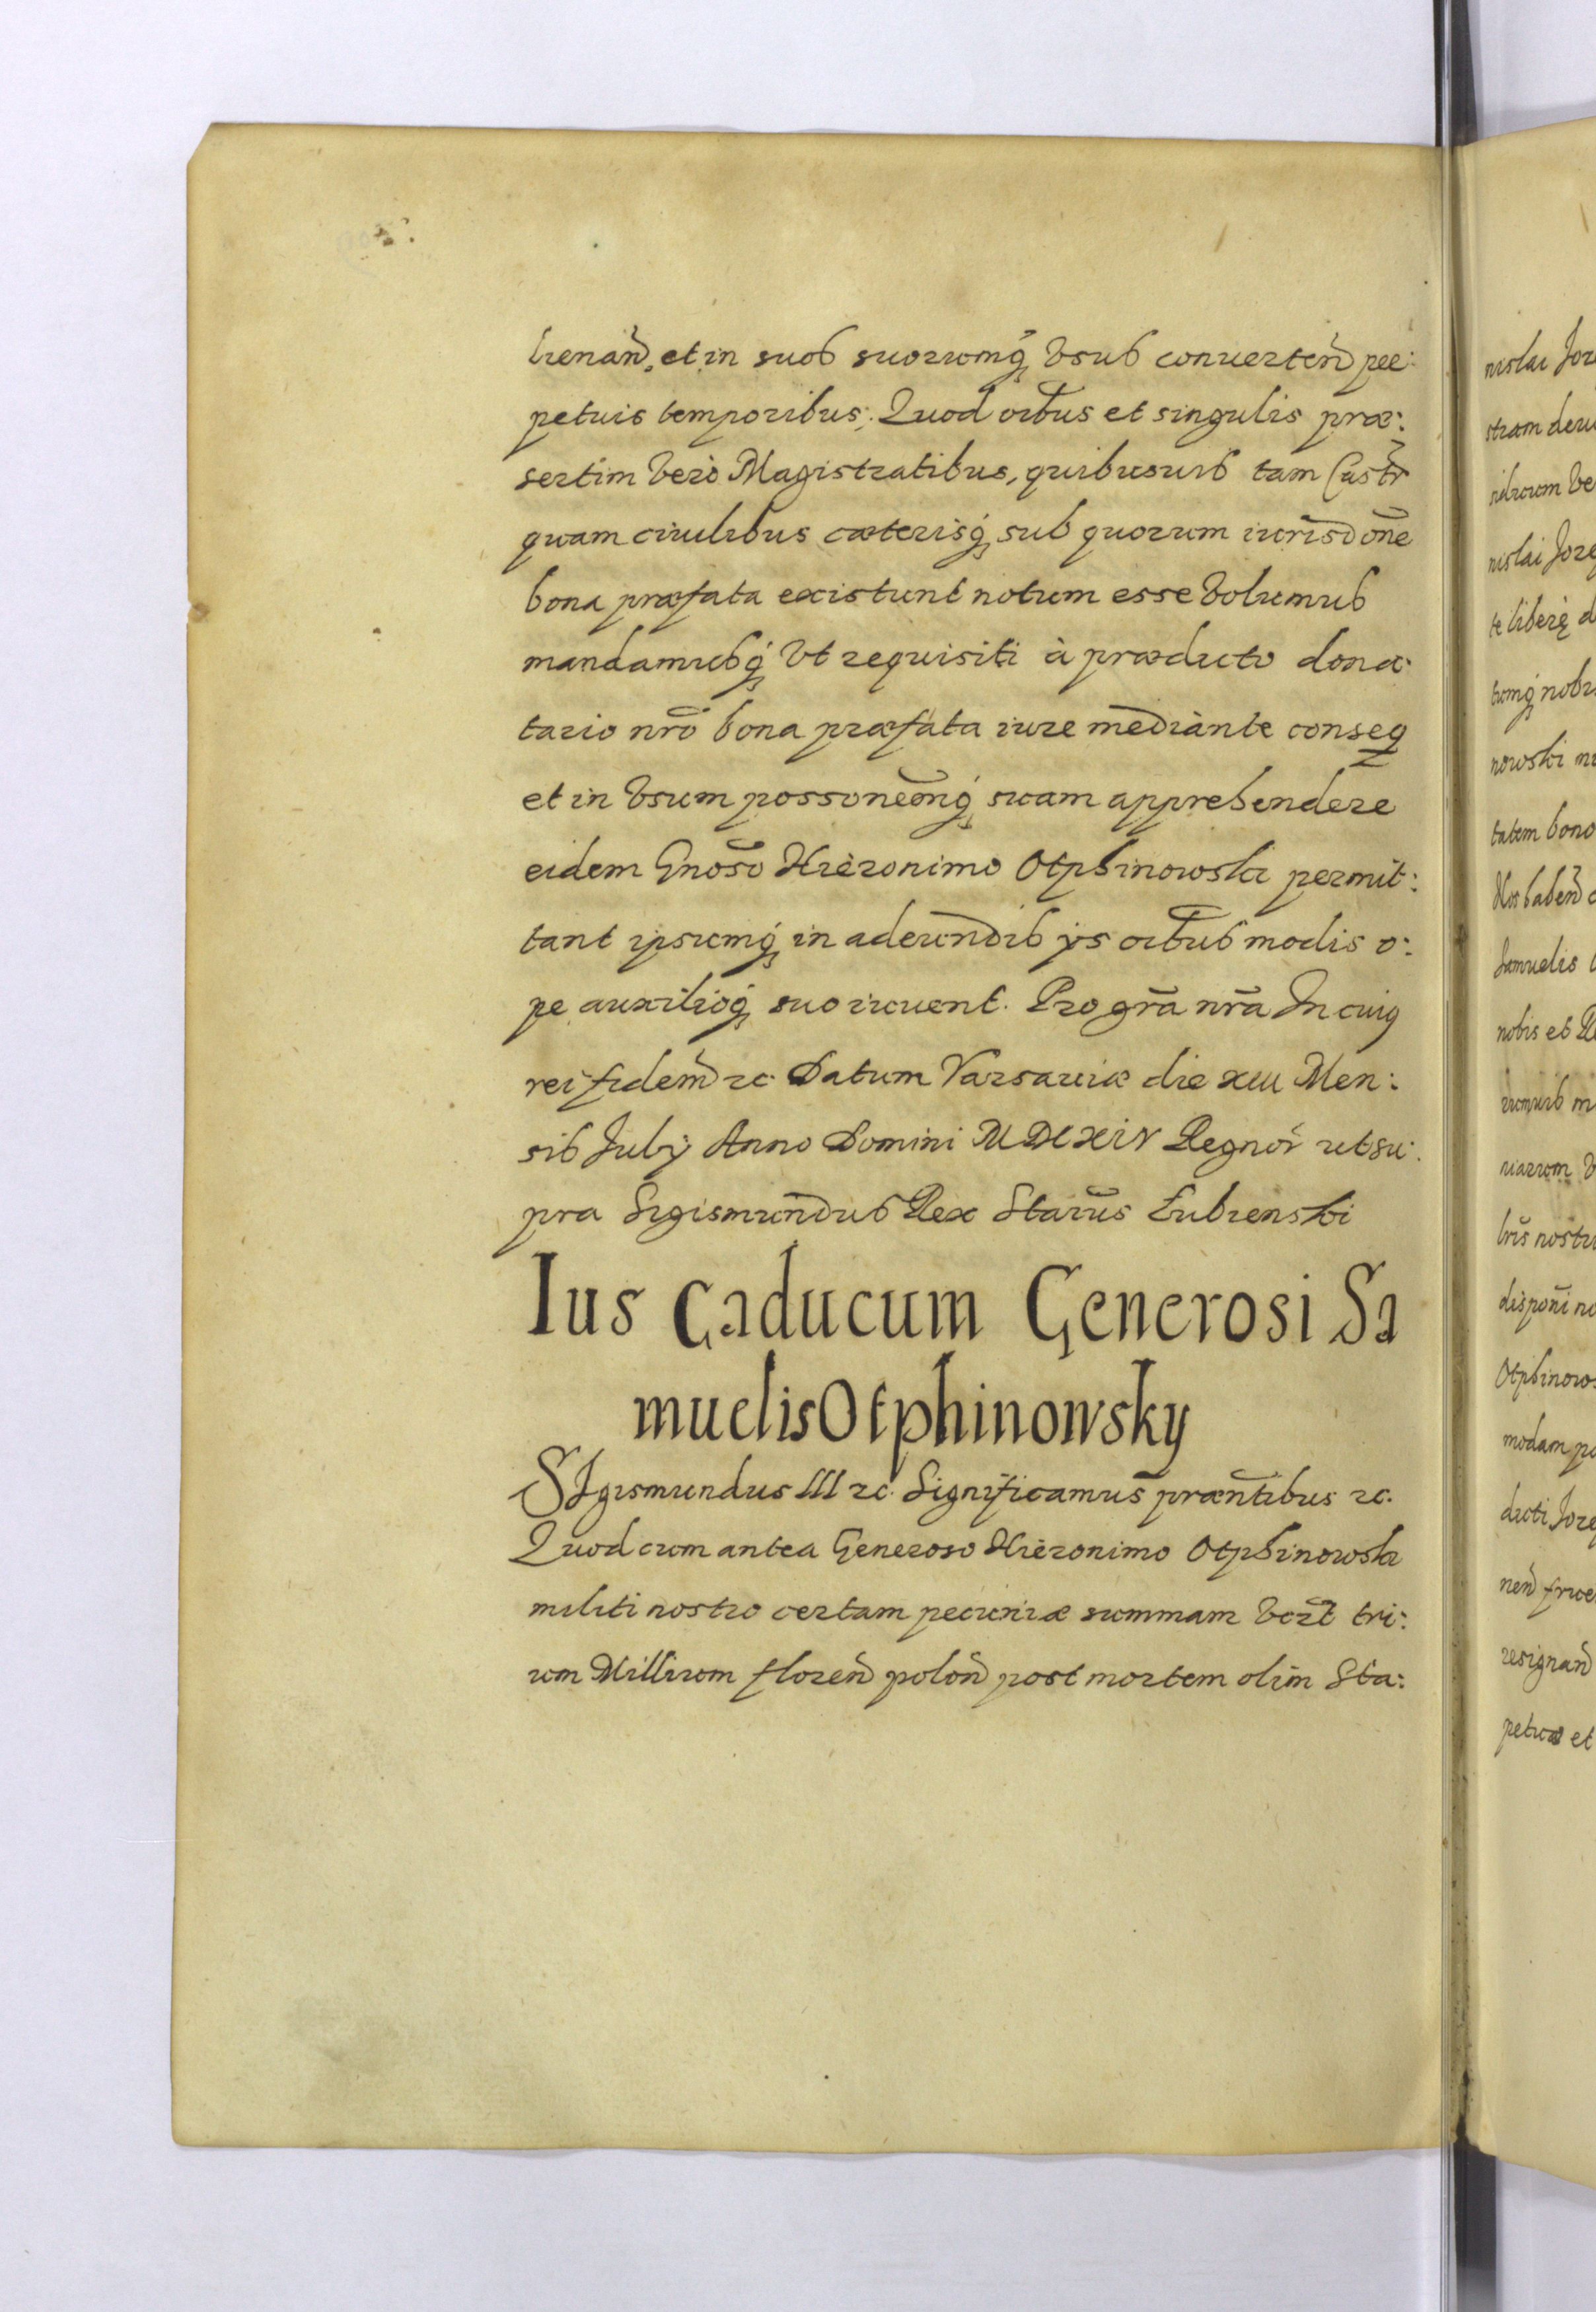 lienañ. et in suos suorumq́ꝫ vsus conuerteñ per:
petuis temporibus; Quod oĩbus et singulis præ:
sertim verò Magistratibus, quibusuis tam Castr̃
quam ciuilibus cæterisq́ꝫ sub quorum iurisd̃one
bona præfata existunt notum esse volumus
mandamusq́ꝫ vt requisiti à prædicto dona:
tario nr̃o bona præfata iure mediante conseq
et in vsum possonẽmq́ꝫ suam apprehendere
eidem Gnoso Hieronimo Otphinowski permit:
tant ipsumq́ꝫ in adeundis ijs oĩbus modis o:
pe auxilioq́ꝫ suo iuuent. Pro gr̃a nr̃a In cuiꝰ
rei fidem̃ ꝛc. Datum Varsauiæ die XIII Men:
sis Julij Anno Domini MDCXIV Regnor̃ ut su:
pra Sigismundus Rex Starũs Łubienski
Ius Caducum Generosi Sa
muelis Otphinowsky
SIgismundus III ꝛc. Significamus præñtibus ꝛc.
Quod cum antea Generoso Hieronimo Otphinowski
militi nostro certam pecuniæ summam vczt̃ tri:
um Millium floreñ poloñ post mortem olim Sta:
nislai Jor
nislai Jorg
te liberè d
nowski
tatem bono
Hos habeñ
Samuelis
nobis et R
lris̃ nostr
Otphinows
modam po
dicti Jorg
resignañ
petuo et